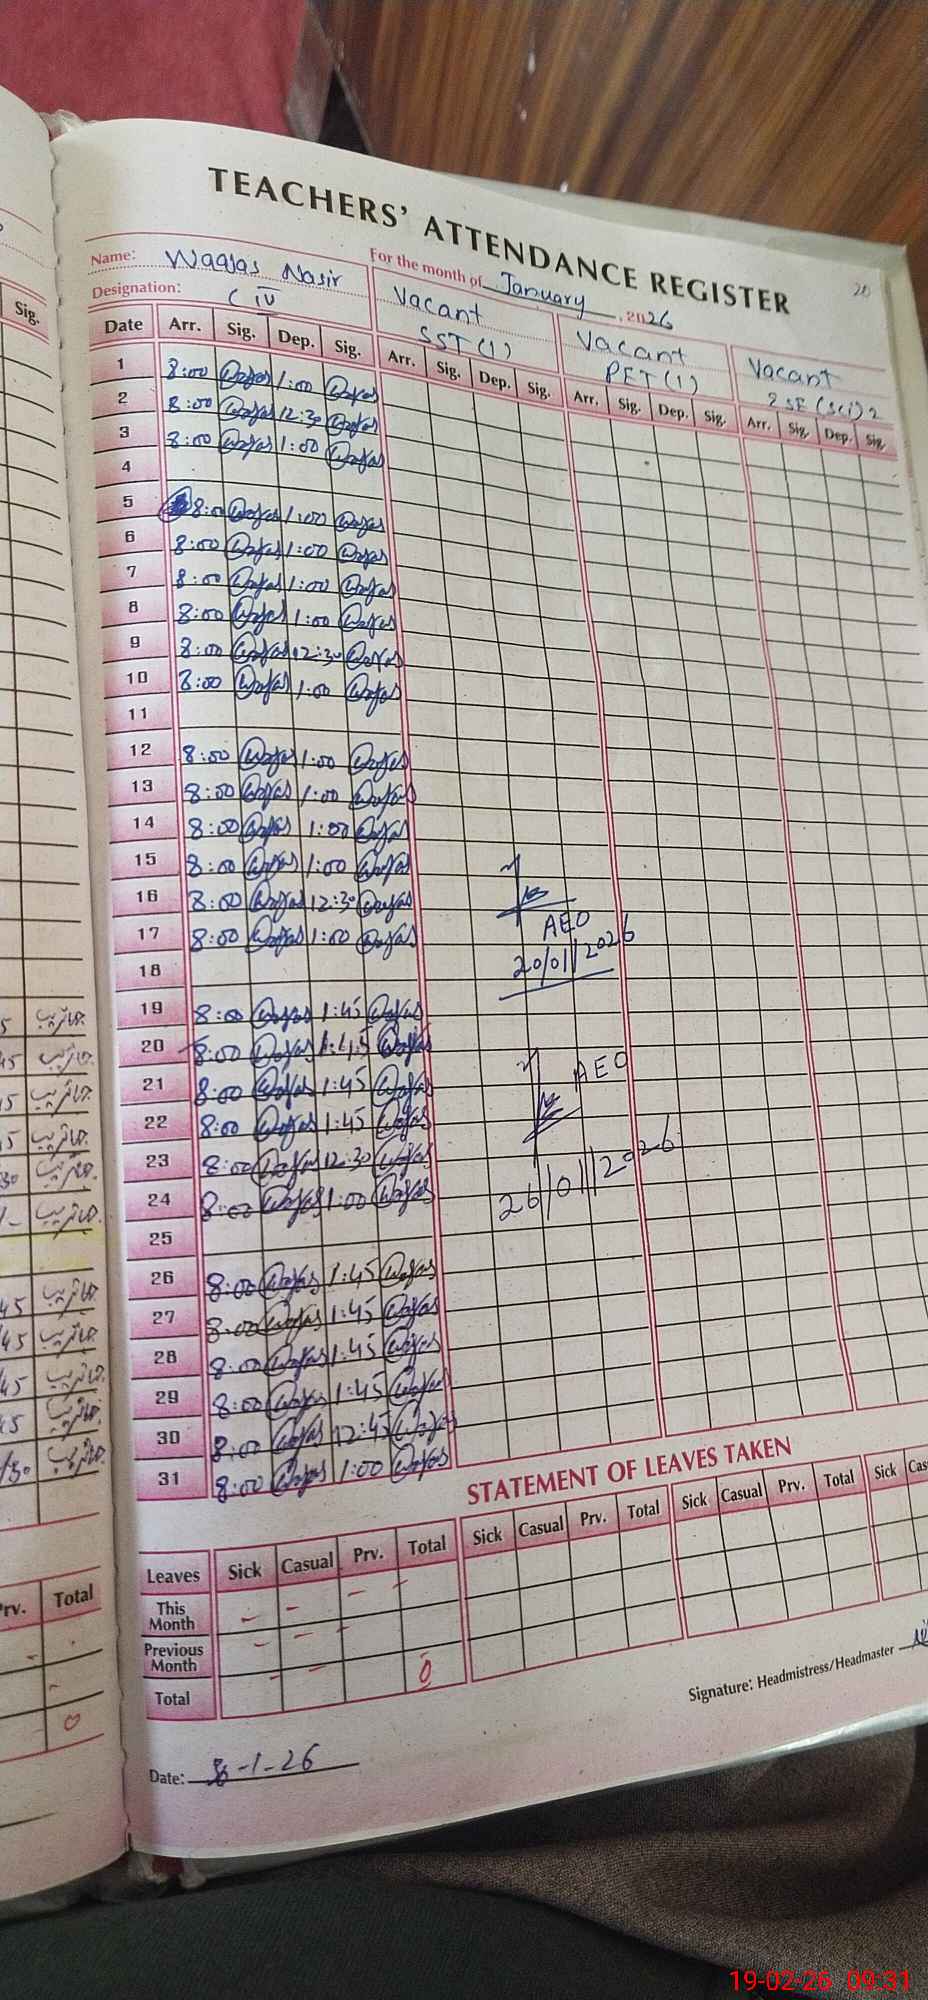 TEACHERS' ATTENDANCE REGISTER
20
For the month of January, 2026
Name: Waqas Nasir
Designation: C IV
Vacant
SST (1)
Vacant
PET (1)
Vacant
Sig.
Date Arr. Sig. Dep. Sig. Arr. Sig. Dep. Sig. Arr. Sig. Dep. Sig. Arr. Sig. Dep. Sig.
1 8:00 Waqas 1:00 Waqas
2 8:00 Waqas 12:30 Waqas
3 8:00 Waqas 1:00 Waqas
4
5 8:00 Waqas 1:00 Waqas
6 8:00 Waqas 1:00 Waqas
7 8:00 Waqas 1:00 Waqas
8 8:00 Waqas 1:00 Waqas
9 8:00 Waqas 12:30 Waqas
10 8:00 Waqas 1:00 Waqas
11
12 8:00 Waqas 1:00 Waqas
13 8:00 Waqas 1:00 Waqas
14 8:00 Waqas 1:00 Waqas
15 8:00 Waqas 1:00 Waqas
16 8:00 Waqas 12:30 Waqas
17 8:00 Waqas 1:00 Waqas
AEO
20/01/2026
18
19 8:00 Waqas 1:45 Waqas
20 8:00 Waqas 1:45 Waqas
21 8:00 Waqas 1:45 Waqas
AEO
22 8:00 Waqas 1:45 Waqas
23 8:00 Waqas 12:30 Waqas
24 8:00 Waqas 1:00 Waqas
26/01/2026
25
26 8:00 Waqas 1:45 Waqas
27 8:00 Waqas 1:45 Waqas
28 8:00 Waqas 1:45 Waqas
29 8:00 Waqas 1:45 Waqas
30 8:00 Waqas 12:45 Waqas
31 8:00 Waqas 1:00 Waqas
STATEMENT OF LEAVES TAKEN
Leaves Sick Casual Prv. Total Sick Casual Prv. Total Sick Casual Prv. Total Sick
This Month - - - -
Previous Month - - - -
Total - - 0
Prv. Total
0
Signature: Headmistress/Headmaster
Date: 8-1-26
19-02-26 09:31